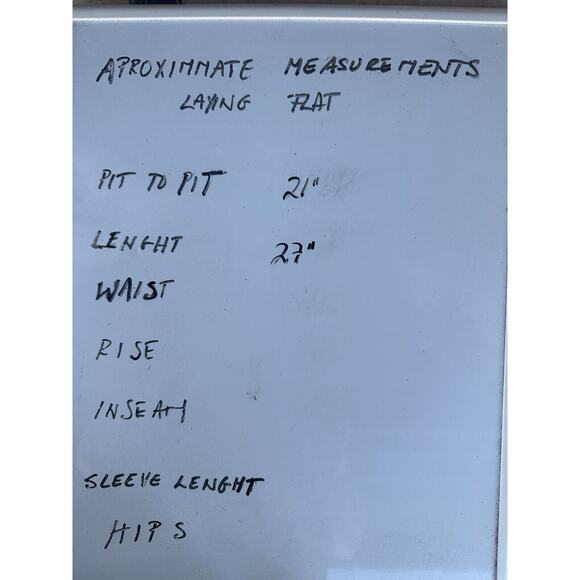 APROXIMMATE MEASUREMENTS
LAYING FLAT
PIT TO PIT 21"
LENGHT 27"
WAIST
RISE
INSEAM
SLEEVE LENGHT
HIPS